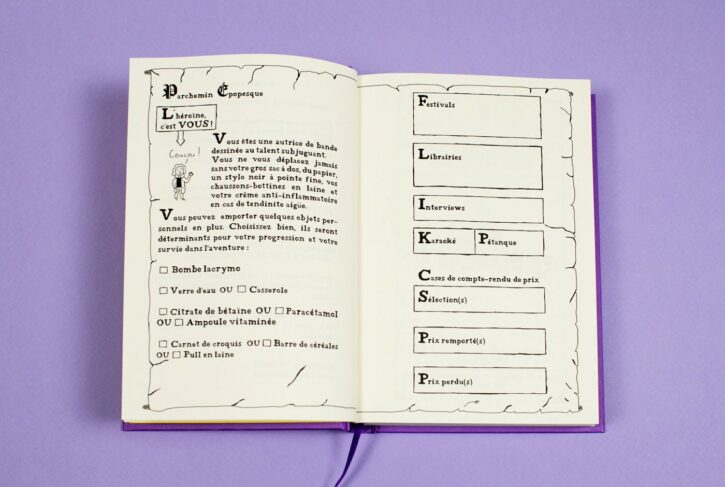 Parchemin Épopesque
L'héroïne,
c'est VOUS !
Coucou !
Vous êtes une autrice de bande
dessinée au talent subjuguant.
Vous ne vous déplacez jamais
sans votre gros sac à dos, du papier,
un stylo noir à pointe fine, vos
chaussons-bottines en laine et
votre crème anti-inflammatoire
en cas de tendinite aigüe.
Vous pouvez emporter quelques objets per-
sonnels en plus. Choisissez bien, ils seront
déterminants pour votre progression et votre
survie dans l'aventure :
Bombe lacrymo
Verre d'eau OU Casserole
Citrate de bétaïne OU Paracétamol
OU Ampoule vitaminée
Carnet de croquis OU Barre de céréales
OU Pull en laine
Festivals
Librairies
Interviews
Karaoké Pétanque
Cases de compte-rendu de prix
Sélection(s)
Prix remporté(s)
Prix perdu(s)